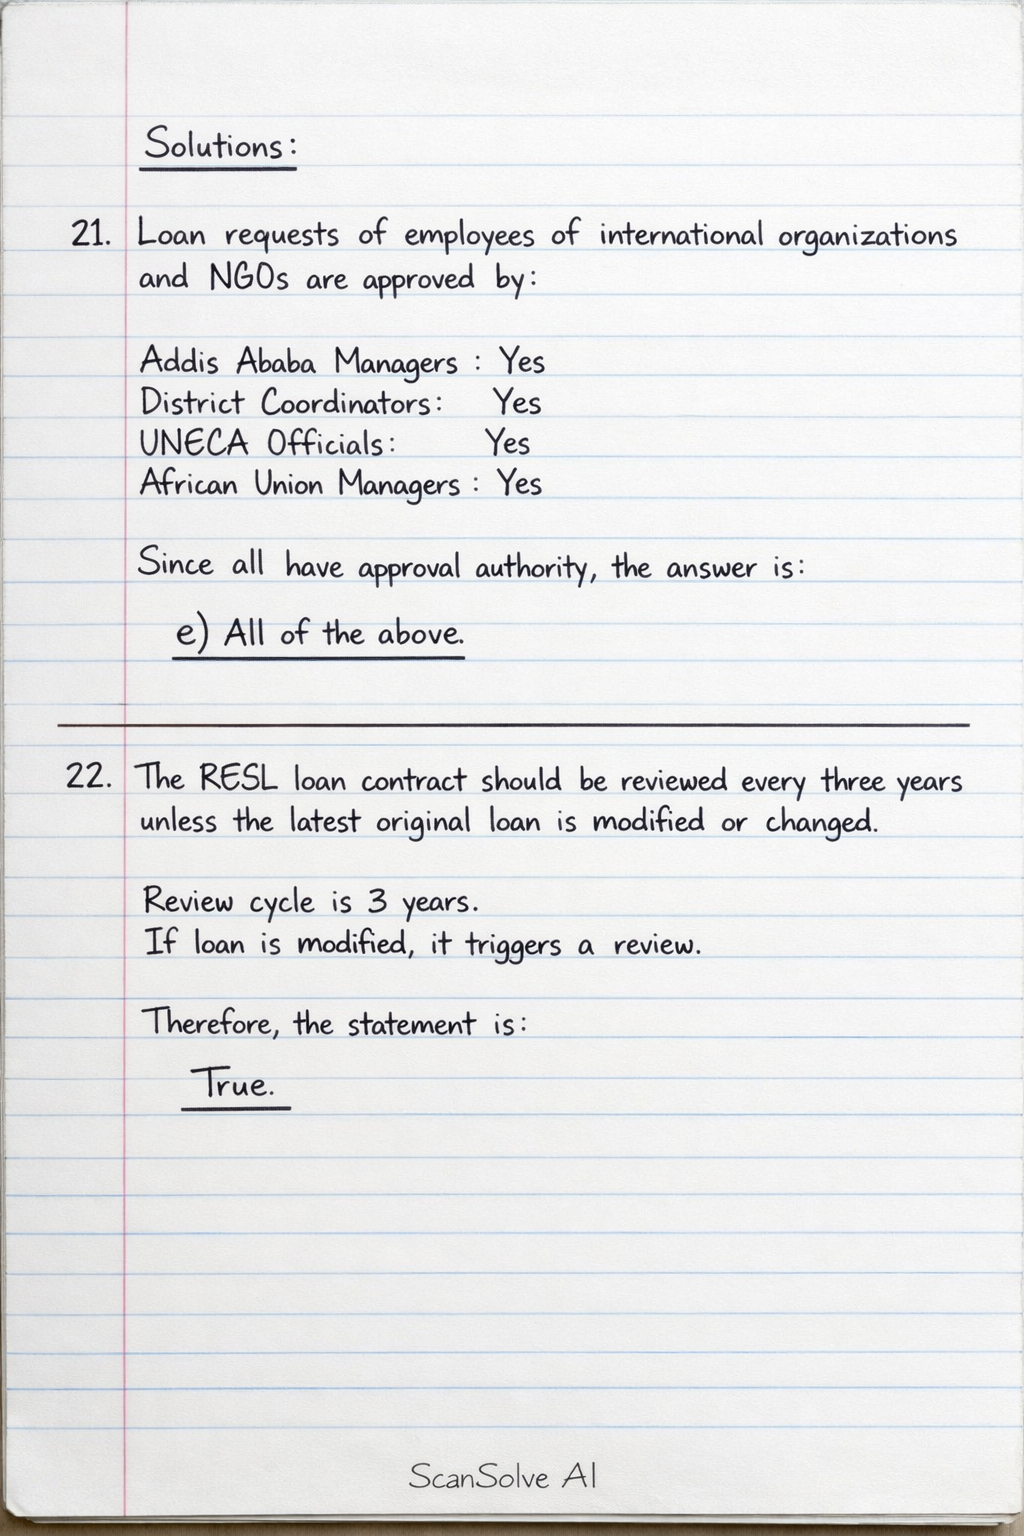 Solutions:
21. Loan requests of employees of international organizations
and NGOs are approved by:
Addis Ababa Managers : Yes
District Coordinators: Yes
UNECA Officials: Yes
African Union Managers : Yes
Since all have approval authority, the answer is:
e) All of the above.
22. The RESL loan contract should be reviewed every three years
unless the latest original loan is modified or changed.
Review cycle is 3 years.
If loan is modified, it triggers a review.
Therefore, the statement is:
True.
ScanSolve AI